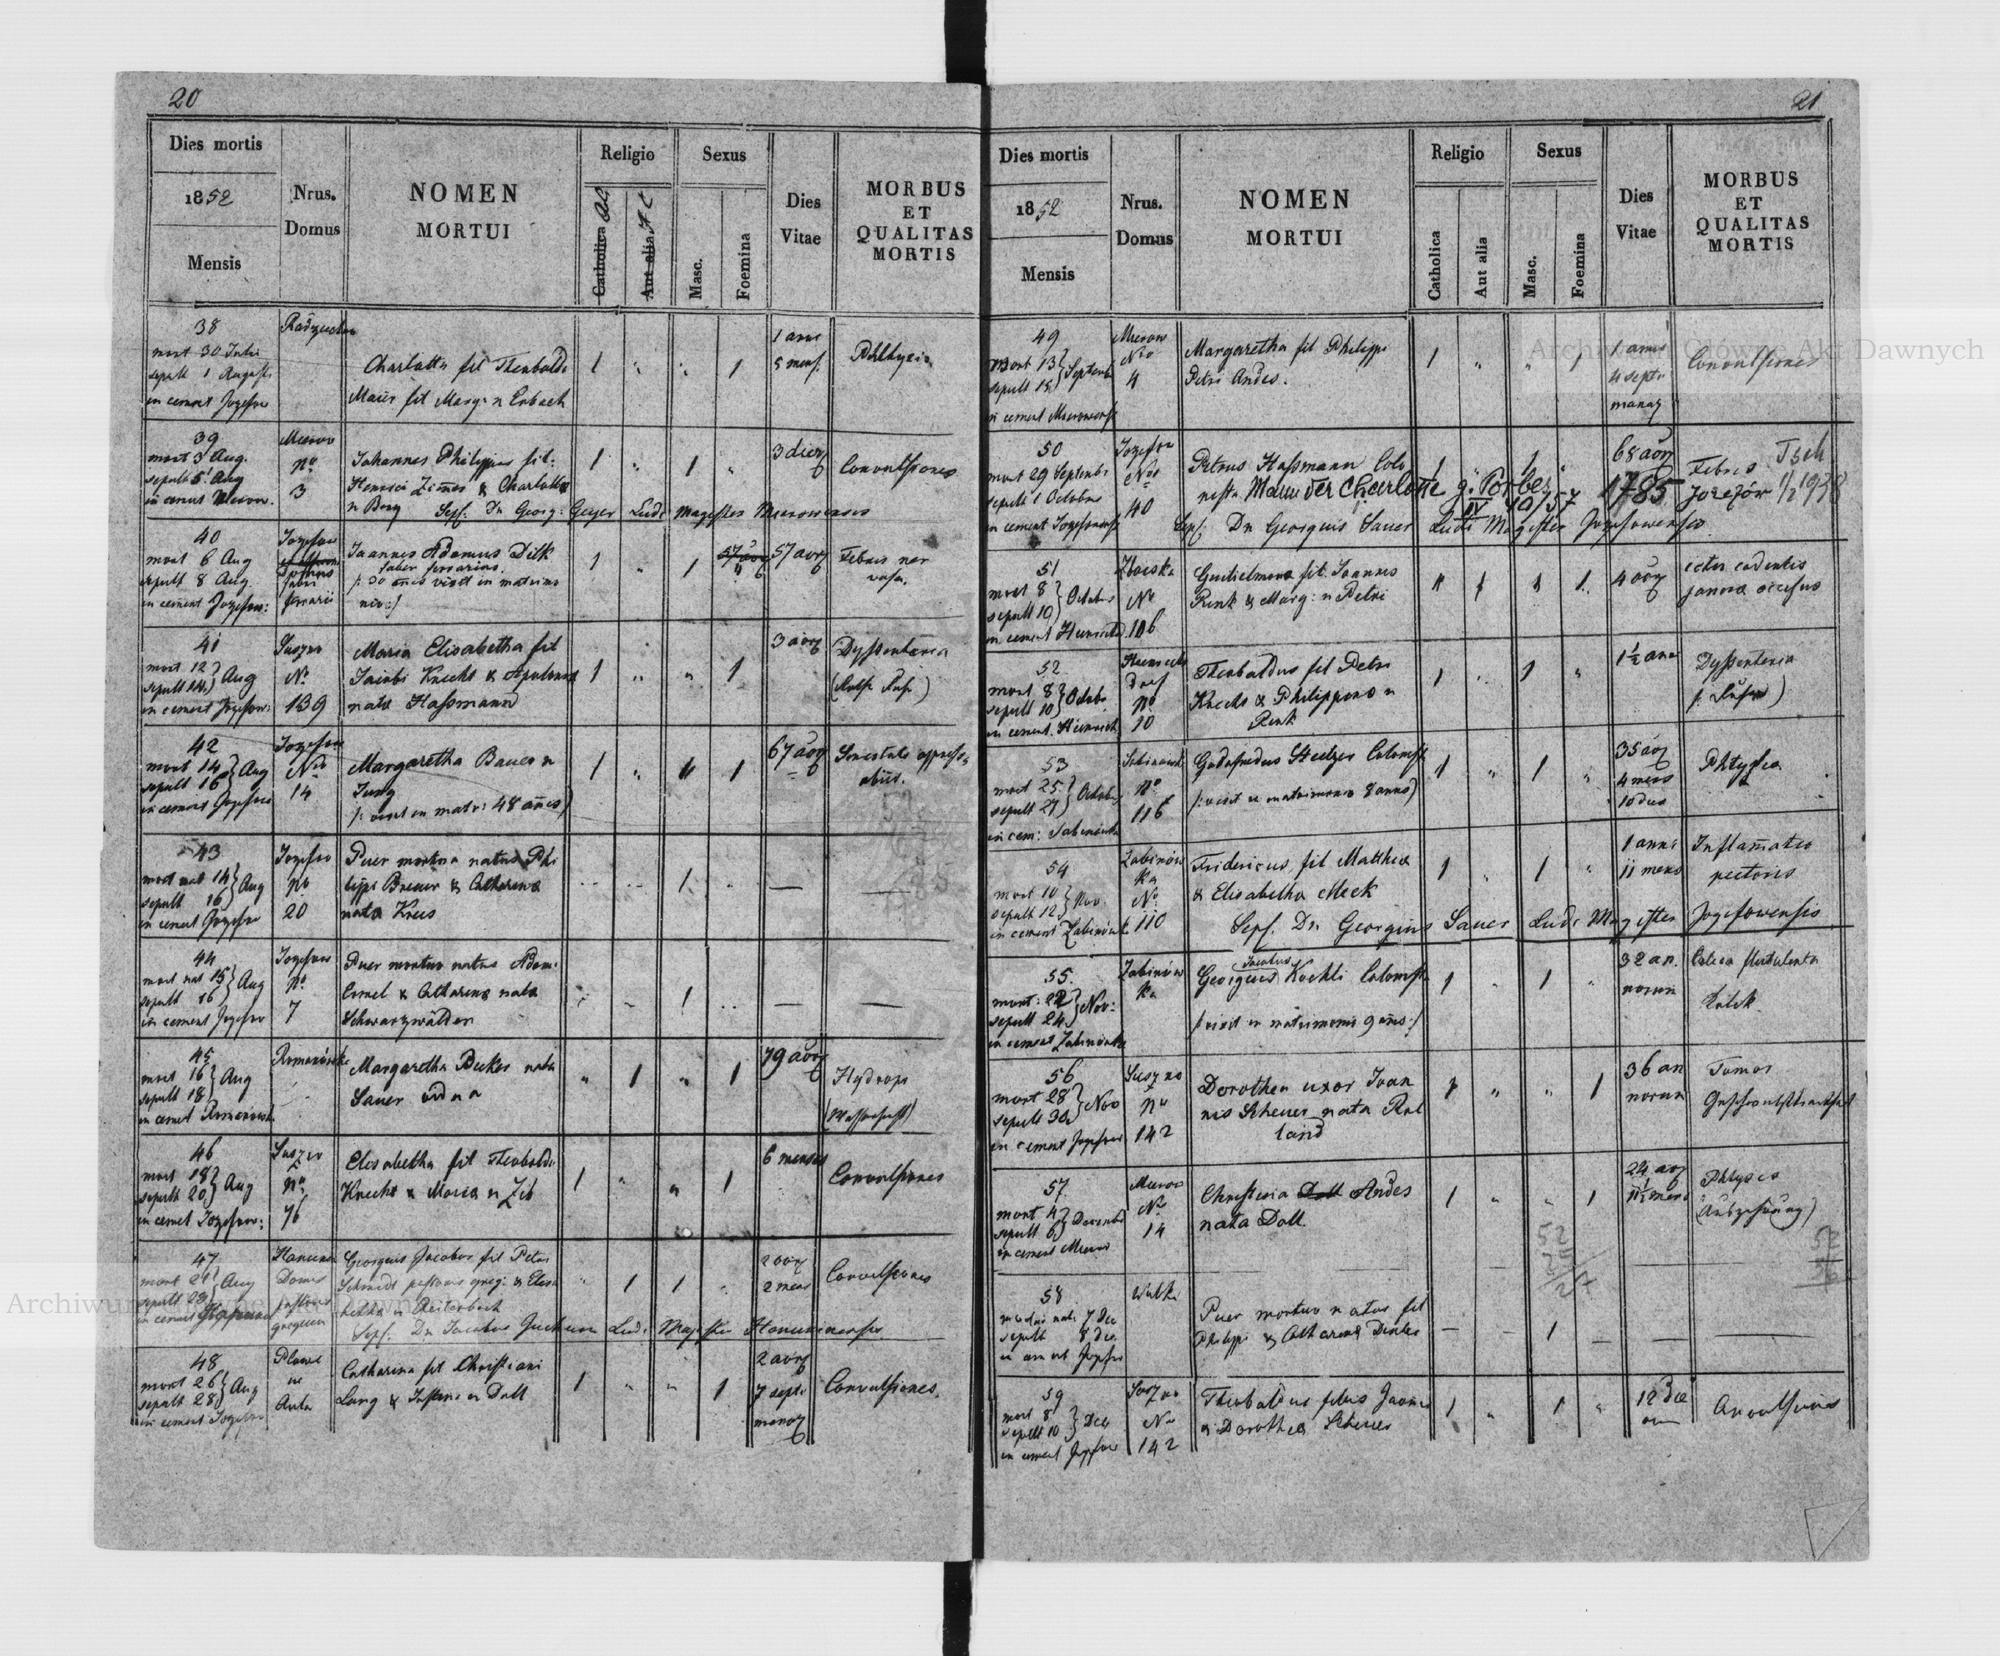 20
Dies mortis
1852
Mensis
Nrus.
Domus
NOMEN
MORTUI
Religio
Catholica
Aut alia
Sexus
Masc.
Foemina
Dies
Vitae
MORBUS
ET
QUALITAS
MORTIS
38
mort 30 Julii
sepult 1 Augusti
in cement Jozefow
Charlotta fil Theobaldi
Maier fil Marg: n Erbach
1 1
1 anni
5 mens:
39
mort 3 Aug.
sepult 5 Aug
in cement Mierow.
Mierow
No
3
Johannes Philippus fil:
Henrici Zimer & Charlotta
n Berg
1 1
3 dierz
Convulsiones
Sepf. Dn Georg: Geyer Ludi Magister Mierowensis
40
mort 6 Aug
sepult 8 Aug.
in cement Jozefow:
Jozefow
fabri
ferrarii
Joannes Adamus Dilk
faber ferrarius.
/: 30 annis vixit in matrimo
nio :/
1 1
57 aorz
Febris ner
vosa.
41
mort 12
sepult 14 Aug
in cement Jozefow:
Suszno
No
139
Maria Elisabetha fil
Jacobi Knecht & Apolonia
nata Hassmann
1 1
3 aorz
Dyssenteria
(Rothe Ruhr)
42
mort 14
sepult 16 Aug
in cement Jozefow
Jozefow
No
14
Margaretha Bauer n
Jung
/: vixit in matr: 48 annis)
1 1
67 aorz
Senectute oppressa
obiit.
43
mort nat 14
sepult 16 Aug
in cement Jozefow
Jozefow
No
20
Puer mortuo natus Phi
lippi Breuer & Catharina
nata Kreis
1
44
mort nat 15
sepult 16 Aug
in cement Jozefow
Jozefow
No
7
Puer mortuo natus Adam:
Ermel & Catharina nata
Schwarzwälder
1
45
mort 16
sepult 18 Aug
in cement Romanowka
Romanówka
Margaretha Becker nata
Sauer vidua
1 1
79 aorz
Hydrops
(Wassersucht)
46
mort 18
sepult 20 Aug
in cemet Jozefow:
Suszno
No
76
Elisabetha fil Theobaldi
Knecht & Maria n Zib
1 1
6 menses
Convulsiones
47
mort 21
sepult 23 Aug
in cement
Hanunin
Domus
pastoris
gregum
Georgius Jacobus fil Petri
Schmidt pastoris greg: & Elisa
betha n Reiterbach
1 1
2 aorz
2 mens
Convulsiones
Sepf. Dn Jacobus Ludi Magister Hanuninensis
48
mort 26
sepult 28 Aug
in cement Jozefow
Catharina fil Christiani
Lang & Justina n Doll
1 1
2 aorz
7 septi
manorz
Convulsiones.
21
Dies mortis
1852
Mensis
Nrus.
Domus
NOMEN
MORTUI
Religio
Catholica
Aut alia
Sexus
Masc.
Foemina
Dies
Vitae
MORBUS
ET
QUALITAS
MORTIS
49
Mort 13
sepult 15 Septembr
in cement Mierowens
Mierow
No
4
Margaretha fil Philippi
Petri Andes.
1 1
1 anni
4 septi
manarz
Convulsiones
50
mort 29 Septembr
sepult 1 Octobris
in cement Jozefowens
Jozefow
No
40
Petrus Hassmann Colo
nista Mann der Charlotte g. Porber
1 1
68 aorz
1785
Febris
Jozefów
IV 10/57
1/2 1938
Sepf. Dn Georgius Sauer Ludi Magister Jozefowensis
51
mort 8
sepult 10 Octobr
in cement Heinrichd
No
106
Guilielmina fil. Joannis
Rink & Marg: n Petri
4 aorz
ictu cadentis
janua occisus
52
mort 8
sepult 10 Octobr
in cement. Heinrich
Heinrichs
dorf
No
10
Theobaldus fil Petri
Knecht & Philippina n
Rink
1 1
1 1/2 ann
Dyssenteria
/: Ruhr)
53
mort 25
sepult 27 Octobr
in cem: Sabinówka
Sabinówka
No
116
Godofredus Steltzer Colonist
/: vixit in matrimonio 8 annis)
1 1
35 aorz
4 mens
10 dies
Phtysis
54
mort 10
sepult 12 Nov.
in cement Zabinówk
Zabinów
ka
No
110
Fridericus fil Matthia
& Elisabetha Meck
1 1
1 anni
11 mens
Inflamatio
pectoris
Sepf. Dn Georgius Sauer Ludi Magister Jozefowensis
55.
mort: 22
sepult 24 Nov:
in cement Zabinówka
Zabinów
ka
Jacobus
Georgius Koehli Colonist
/ vixit in matrimonio 9 annis:/
1 1
32 an.
norum
Colica flatulenta
Kolik
56
mort 28
sepult 30 Nov
in cement Jozefow
Suszno
No
142
Dorothea uxor Joan
nis Scherer nata Rol
land
1
36 an
norum
Tumor
57.
mort 4
sepult 6 Decembr
in cement Mierow
Mierow
No
14
Christina Doll Andes
nata Doll.
1 1
24 aorz
Phtysis
(Auszehrung)
52
58
mortuo nat: 7 Dec
sepult 8 Dec.
in cement Jozefow
Wulka
Puer mortuo natus fil
Philippi & Catharina
1
59
mort 8
sepult 10 Dec
in cement Jozefow
Suszno
No
142
Theobaldus filius Joannis
& Dorothea Scherer
1 1
12 die
rum
Convulsiones
Archiwum Główne Akt Dawnych
Archiwum Główne Akt Dawnych